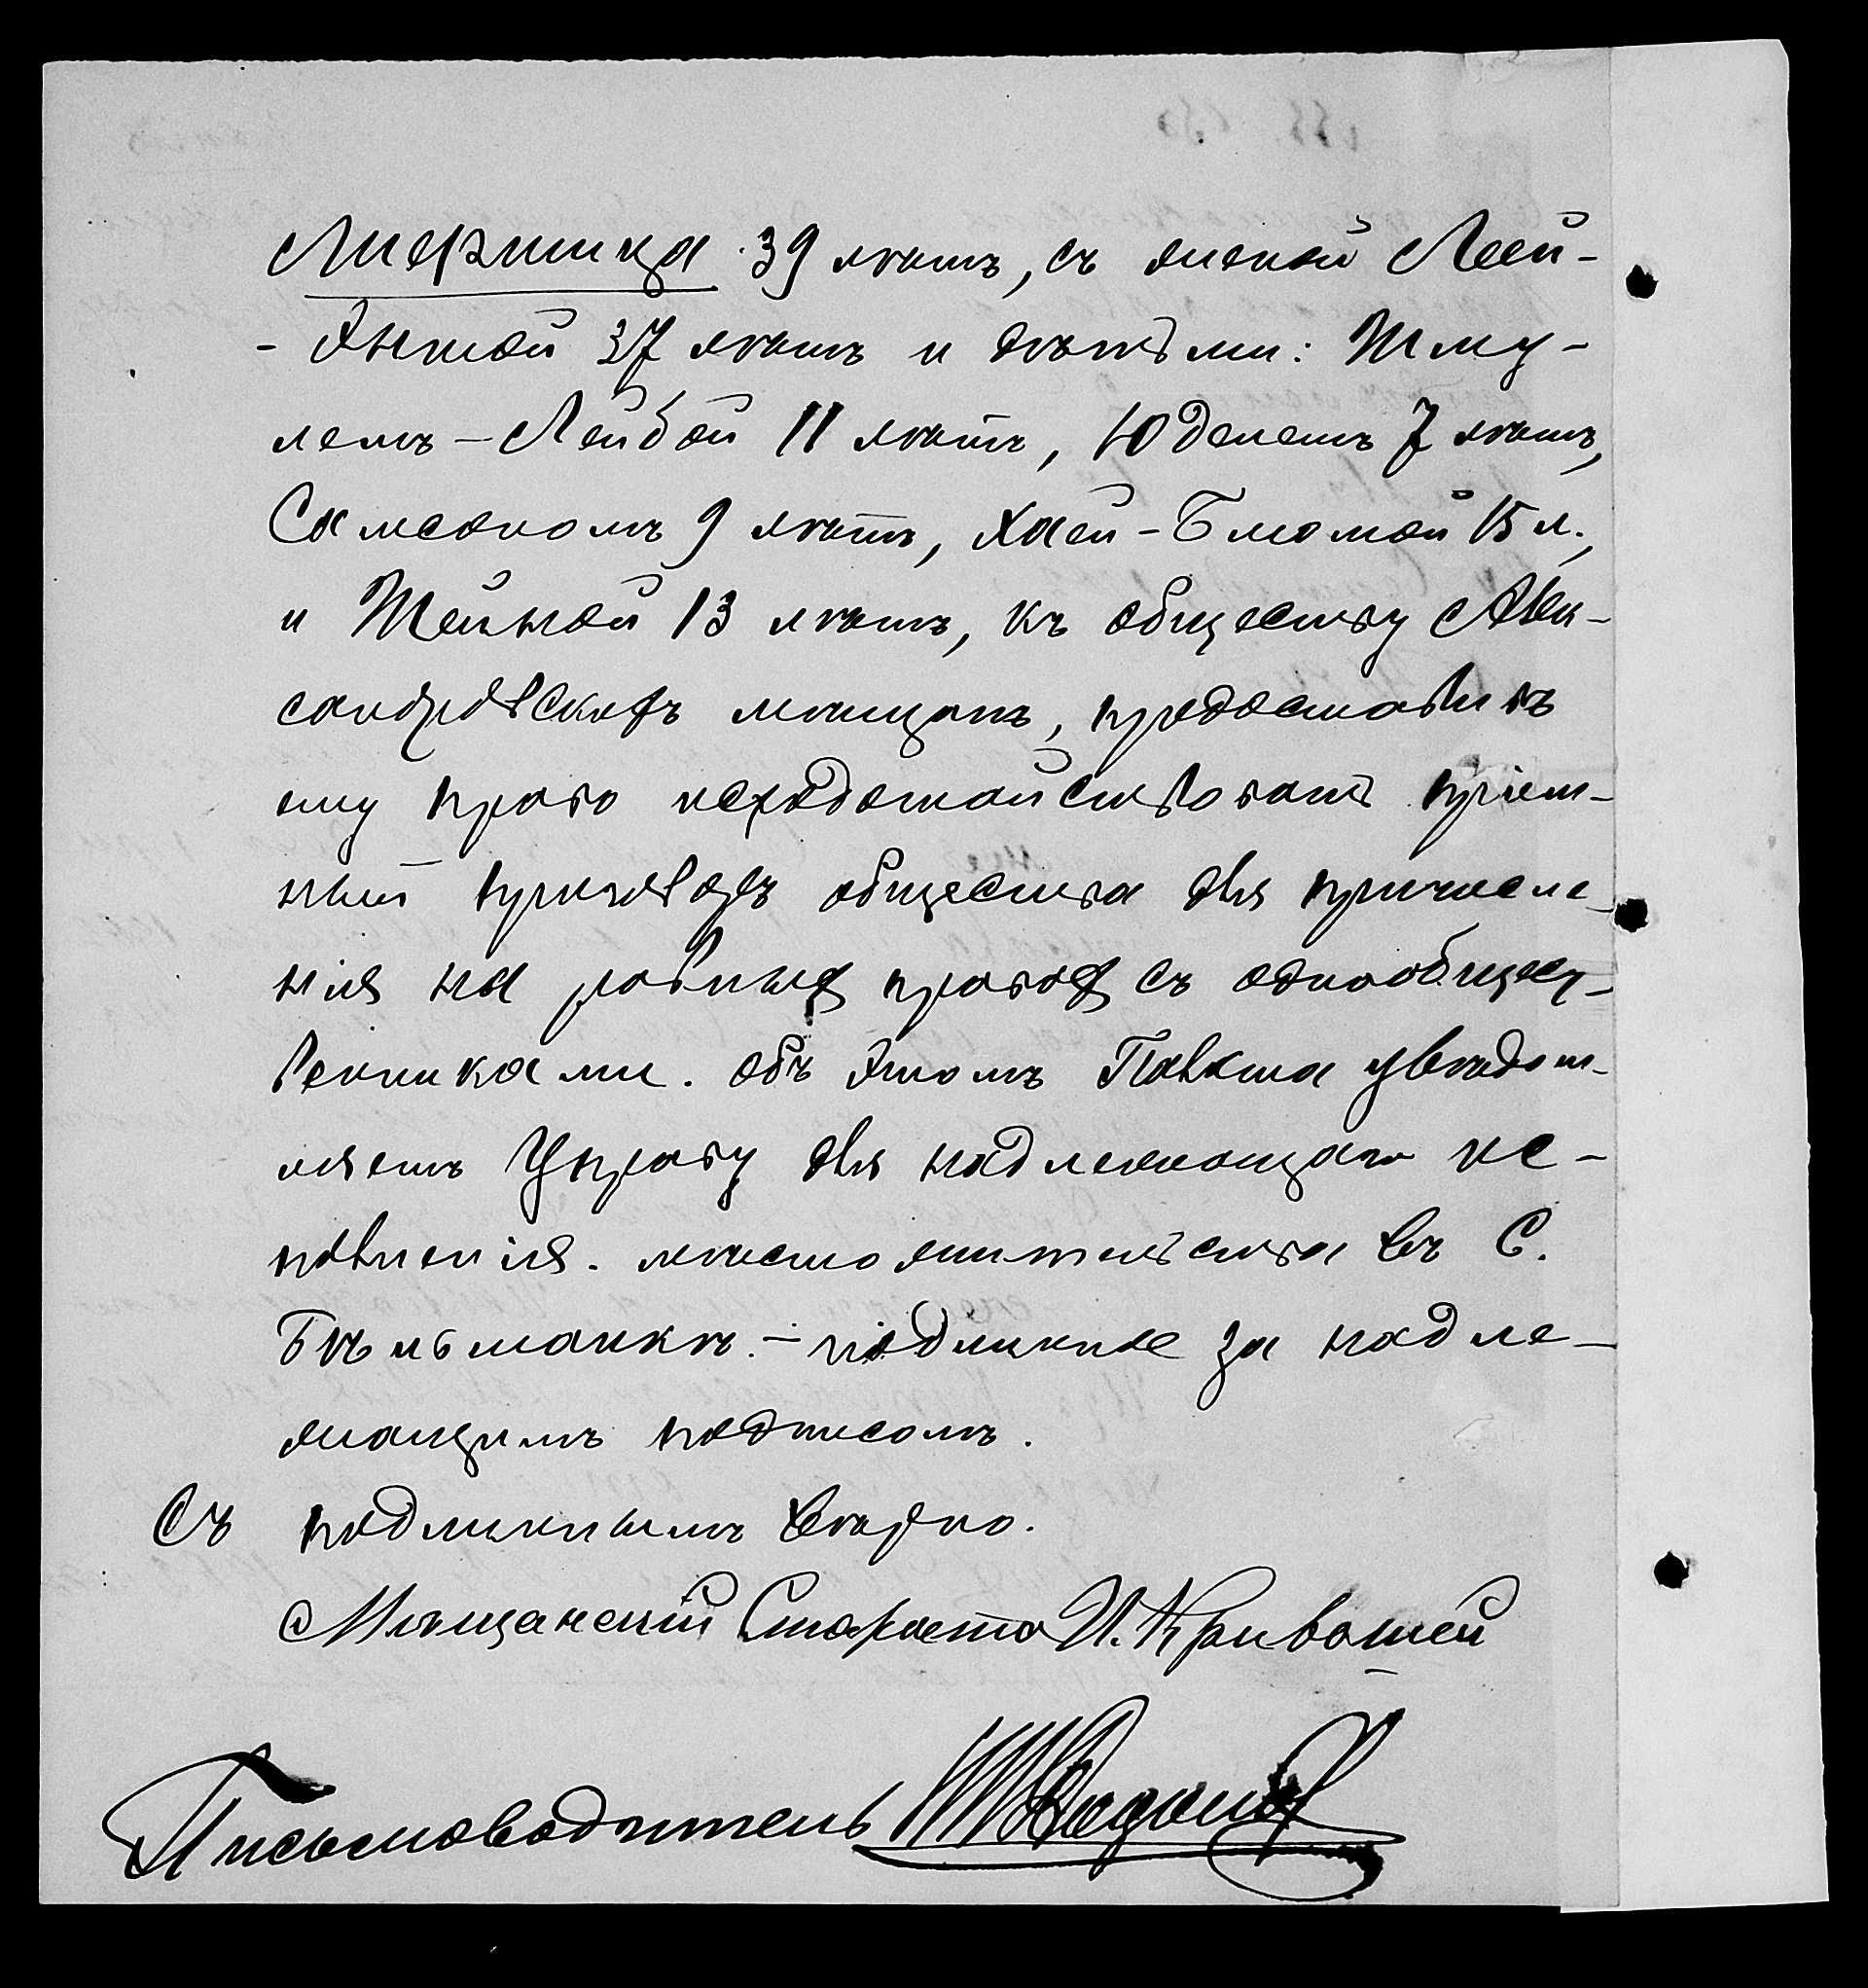 Лифшица 39 лѣтъ, съ женой Леей-
-Энтой 37 лѣтъ и дѣтьми: Шму-
лемъ-Лейбой 11 лѣтъ, Юделемъ 7 лѣтъ,
Самсономъ 9 лѣтъ, Хаей-Блюмой 15 л.,
и Шейной 13 лѣтъ, къ обществу Алек-
сандровскихъ мѣщанъ, предоставивъ
ему право исходотайствовать пріем-
ный приговоръ общества для причисле-
нія на ровныхъ правахъ съ однообщест-
венниками. Объ этомъ Палата увѣдом-
ляетъ Управу для надлежащаго ис-
полненія. мѣсто жительства въ С.
Бѣльманкѣ. - подлинное за надле-
жащимъ подписомъ.
Съ подлиннымъ вѣрно.
Мѣщанскій Староста И. Кривошей
Письмоводитель